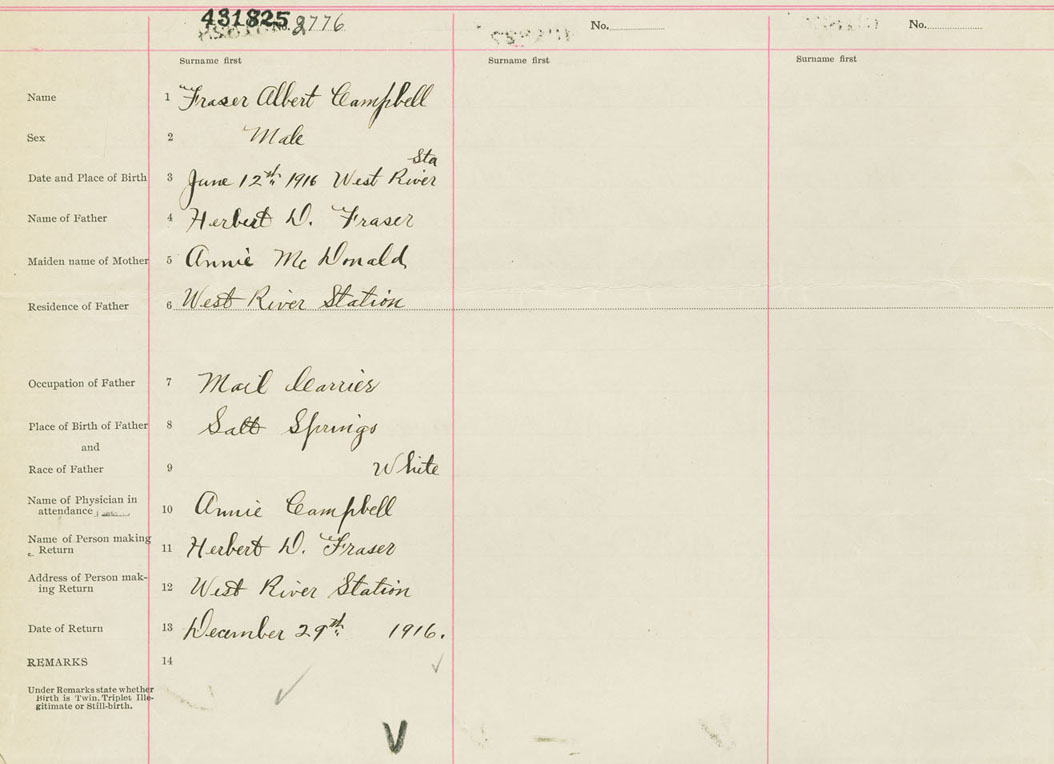 431825
No. 2776
No.
No.
Surname first
Surname first
Surname first
Name 1 Fraser Albert Campbell
Sex 2 Male
Sta
Date and Place of Birth 3 June 12th 1916 West River
Name of Father 4 Herbert D. Fraser
Maiden name of Mother 5 Annie Mc Donald
Residence of Father 6 West River Station
Occupation of Father 7 Mail Carrier
Place of Birth of Father 8 Salt Springs
and
Race of Father 9 White
Name of Physician in
attendance 10 Annie Campbell
Name of Person making
Return 11 Herbert D. Fraser
Address of Person mak-
ing Return 12 West River Station
Date of Return 13 December 29th 1916.
REMARKS 14
Under Remarks state whether
Birth is Twin, Triplet Ille-
gitimate or Still-birth.